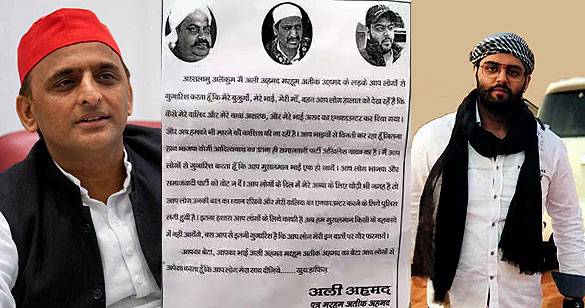 अस्सलामु अलैकुम मैं अली अहमद मरहूम अतीक अहमद के लड़के आप लोगों से
गुजारिश करता हूँ कि, मेरे बुजुर्गों, मेरे भाई, मेरी माँ, बहन आप लोग हालात को देख रहे हैं कि
कैसे मेरे वालिद और मेरे चाचा अशरफ, और मेरे भाई असद का एनकाउन्टर कर दिया गया।
और अब हमको भी मारने की कोशिश की जा रही है। आप भाइयों से विनती कर रहा हूँ जितना
हाथ भाजपा योगी आदित्यनाथ का उतना ही समाजवादी पार्टी अखिलेश यादव का है। मैं आप
लोगों से गुजारिश करता हूँ कि आप मुसलमान भाई एक हो जायें। आप लोग भाजपा और
समाजवादी पार्टी को वोट न दें। आप लोगों के दिल में मेरे अब्बा के लिए थोड़ी भी जगह है तो
आप लोग उनकी बात का ध्यान रखिये और मेरी वालिदा का एनकाउन्टर करने के लिये पुलिस
लगी हुयी है। इतना इशारा आप लोगों के लिये काफी है अब हम मुसलमान किसी के बहकावे
में नहीं आयेंगे, बस आप से इतनी गुजारिश है कि आप लोग मेरी इन बातों पर गौर फरमायें।
आपका बेटा, आपका भाई अली अहमद मरहूम अतीक अहमद का बेटा आप लोगों से
अपेक्षा करता हूँ कि आप लोग मेरा साथ दीजिये......खुदा हाफिज
अली अहमद
पुत्र मरहूम अतीक अहमद